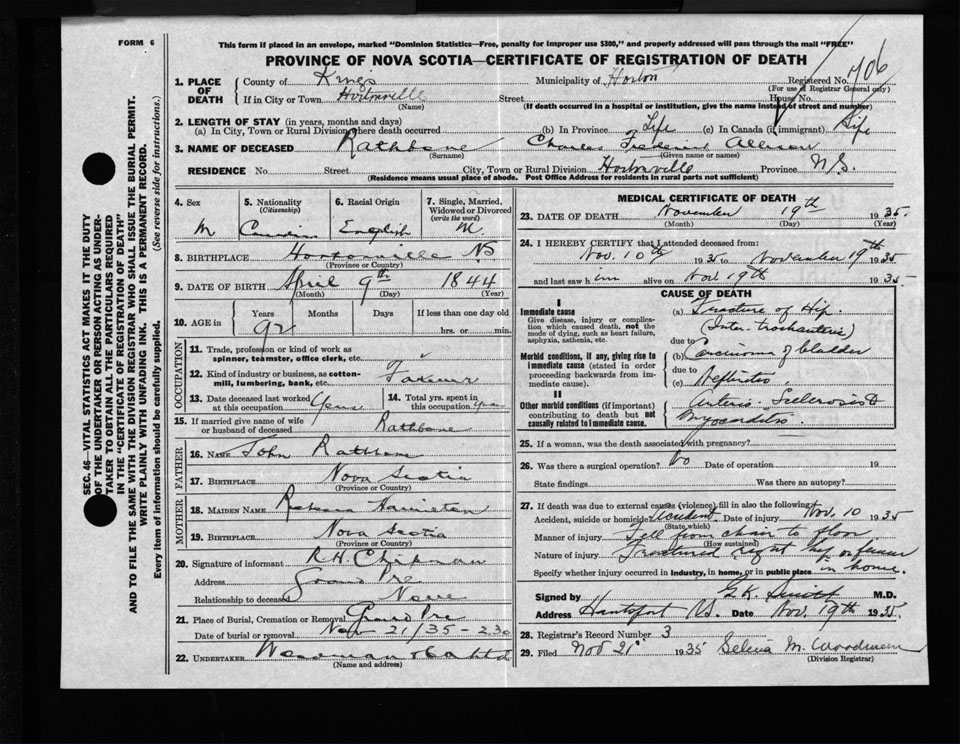 FORM 6
This form if placed in an envelope, marked "Dominion Statistics—Free, penalty for improper use $300," and properly addressed will pass through the mail "FREE"
PROVINCE OF NOVA SCOTIA—CERTIFICATE OF REGISTRATION OF DEATH
1. PLACE OF DEATH
County of Kings Municipality of Horton Registered No. 406
(For use of Registrar General only)
If in City or Town Hortonville Street House No.
(Name) (If death occurred in a hospital or institution, give the name instead of street and number)
2. LENGTH OF STAY (in years, months and days)
(a) In City, Town or Rural Division where death occurred (b) In Province Life (c) In Canada (if immigrant) Life
3. NAME OF DECEASED Rathbone Charles Frederick Allison
(Surname) (Given name or names)
RESIDENCE No. Street City, Town or Rural Division Hortonville Province N.S.
(Residence means usual place of abode. Post Office Address for residents in rural parts not sufficient)
4. Sex 5. Nationality (Citizenship) 6. Racial Origin 7. Single, Married, Widowed or Divorced (write the word)
M English M.
8. BIRTHPLACE Hortonville N.S.
(Province or Country)
9. DATE OF BIRTH April 9th 1844
(Month) (Day) (Year)
10. AGE in Years Months Days If less than one day old
92 hrs. or min.
OCCUPATION
11. Trade, profession or kind of work as spinner, teamster, office clerk, etc.
12. Kind of industry or business, as cotton-mill, lumbering, bank, etc. Farmer
13. Date deceased last worked at this occupation 14. Total yrs. spent in this occupation
15. If married give name of wife or husband of deceased Rathbone
FATHER
16. NAME John Rathbone
17. BIRTHPLACE Nova Scotia
(Province or Country)
MOTHER
18. MAIDEN NAME Rebecca Hamilton
19. BIRTHPLACE Nova Scotia
(Province or Country)
20. Signature of informant R. H. Chipman
Address Grand Pre
Relationship to deceased None
21. Place of Burial, Cremation or Removal Grand Pre
Date of burial or removal Nov 21/35 - 2.30
22. UNDERTAKER Woodman
(Name and address)
MEDICAL CERTIFICATE OF DEATH
23. DATE OF DEATH November 19th 1935.
(Month) (Day) (Year)
24. I HEREBY CERTIFY that I attended deceased from:
Nov. 10th 193 to November 19th 1935
and last saw him alive on Nov. 19th 1935
CAUSE OF DEATH
I
Immediate cause (a) Fracture of Hip.
Give disease, injury or complication which caused death, not the mode of dying, such as heart failure, asphyxia, asthenia, etc.
(Inter-Trochanteric)
due to
Morbid conditions, if any, giving rise to immediate cause (stated in order proceeding backwards from immediate cause).
(b) Carcinoma of bladder
due to
(c) Nephritis.
II
Other morbid conditions (if important) contributing to death but not causally related to immediate cause.
Arterio-Sclerosis &
Myocarditis.
25. If a woman, was the death associated with pregnancy?
26. Was there a surgical operation? No Date of operation 19
State findings Was there an autopsy?
27. If death was due to external causes (violence) fill in also the following:
Accident, suicide or homicide Accident Date of injury Nov. 10 1935
(State which)
Manner of injury Fell from chair to floor
(How sustained)
Nature of injury Fractured right hip or femur
Specify whether injury occurred in industry, in home, or in public place in home.
Signed by G.K. Smith M.D.
Address Hantsport N.S. Date Nov. 19th 1935
28. Registrar's Record Number 3
29. Filed Nov 21 1935 Selena M. Woodman
(Division Registrar)
SEC. 46—VITAL STATISTICS ACT MAKES IT THE DUTY
OF THE UNDERTAKER OR PERSON ACTING AS UNDER-
TAKER TO OBTAIN ALL THE PARTICULARS REQUIRED
IN THE "CERTIFICATE OF REGISTRATION OF DEATH"
AND TO FILE THE SAME WITH THE DIVISION REGISTRAR WHO SHALL ISSUE THE BURIAL PERMIT.
WRITE PLAINLY WITH UNFADING INK. THIS IS A PERMANENT RECORD.
Every item of information should be carefully supplied. (See reverse side for instructions.)